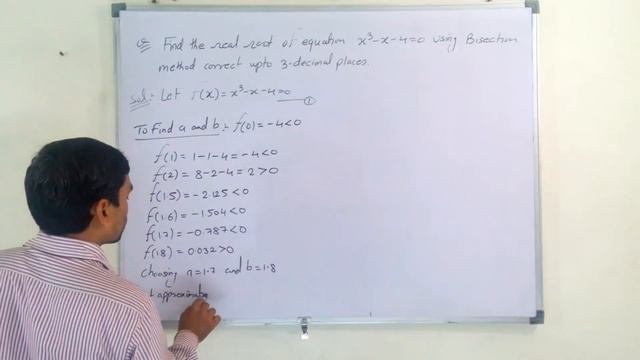 Q Find the real root of equation x³-x-4=0 using Bisection
method correct upto 3-decimal places.
Sol:- Let f(x)=x³-x-4=0 ①
To Find a and b:- f(0)=-4<0
f(1)= 1-1-4=-4<0
f(2)= 8-2-4=2>0
f(1.5)=-2.125<0
f(1.6)=-1.504<0
f(1.7)=-0.787<0
f(1.8)=0.032>0
choosing a=1.7 and b=1.8